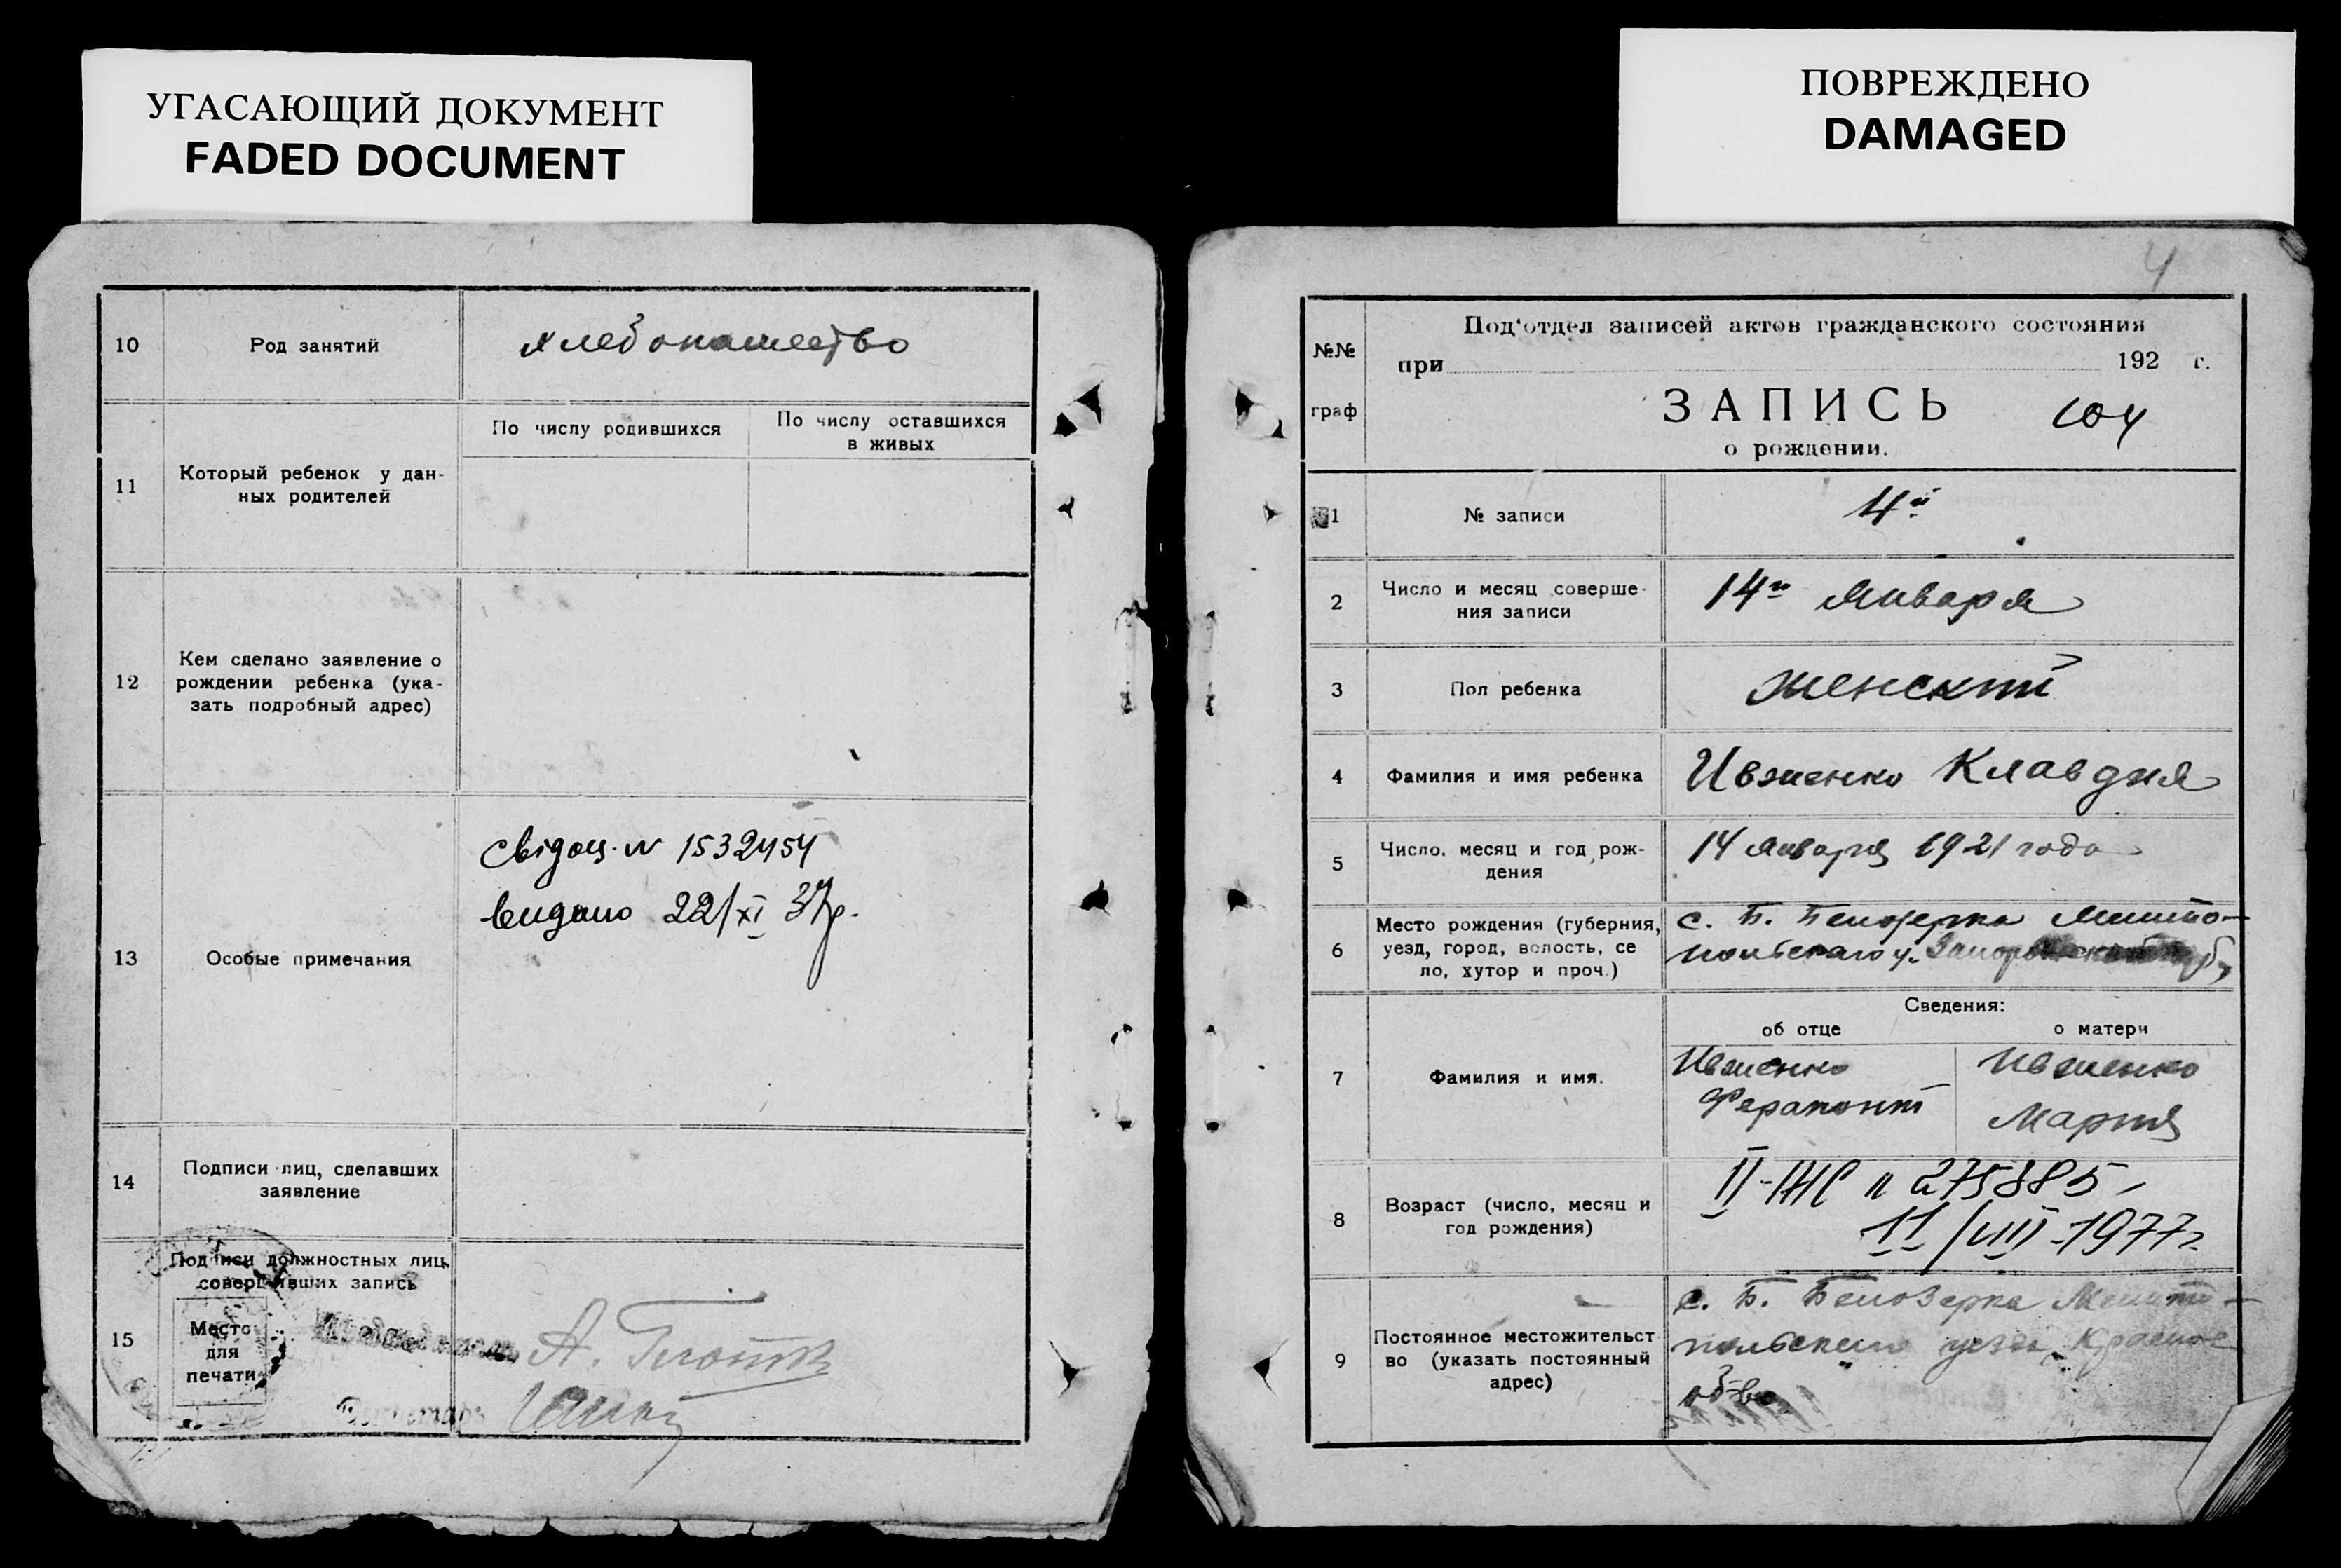 УГАСАЮЩИЙ ДОКУМЕНТ
FADED DOCUMENT
ПОВРЕЖДЕНО
DAMAGED
10
Род занятий
хлебопашество
11
Который ребенок у дан-
ных родителей
По числу родившихся
По числу оставшихся
в живых
12
Кем сделано заявление о
рождении ребенка (ука-
зать подробный адрес)
13
Особые примечания
свідоц. N 1532454
видано 22/XI 37р.
14
Подписи лиц, сделавших
заявление
15
Подписи должностных лиц,
совершивших запись
Место
для
печати
А.
4
№№
граф
Под'отдел записей актов гражданского состояния
при 192 г.
ЗАПИСЬ
о рождении.
1
№ записи
4й
2
Число и месяц соверше-
ния записи
14го Января
3
Пол ребенка
женский
4
Фамилия и имя ребенка
Ивженко Клавдия
5
Число, месяц и год рож-
дения
14 января 1921 года
6
Место рождения (губерния,
уезд, город, волость, се
ло, хутор и проч.)
с. Б. Белозерка Мелито-
польскаго у.
Сведения:
об отце
о матери
7
Фамилия и имя.
Ивженко
Ферапонт
Ивженко
Мария
8
Возраст (число, месяц и
год рождения)
II-ЖС № 275885
11/VIII-1977г.
9
Постоянное местожительст
во (указать постоянный
адрес)
с. Б. Белозерка Мелито-
польского уезда Красное
об-во